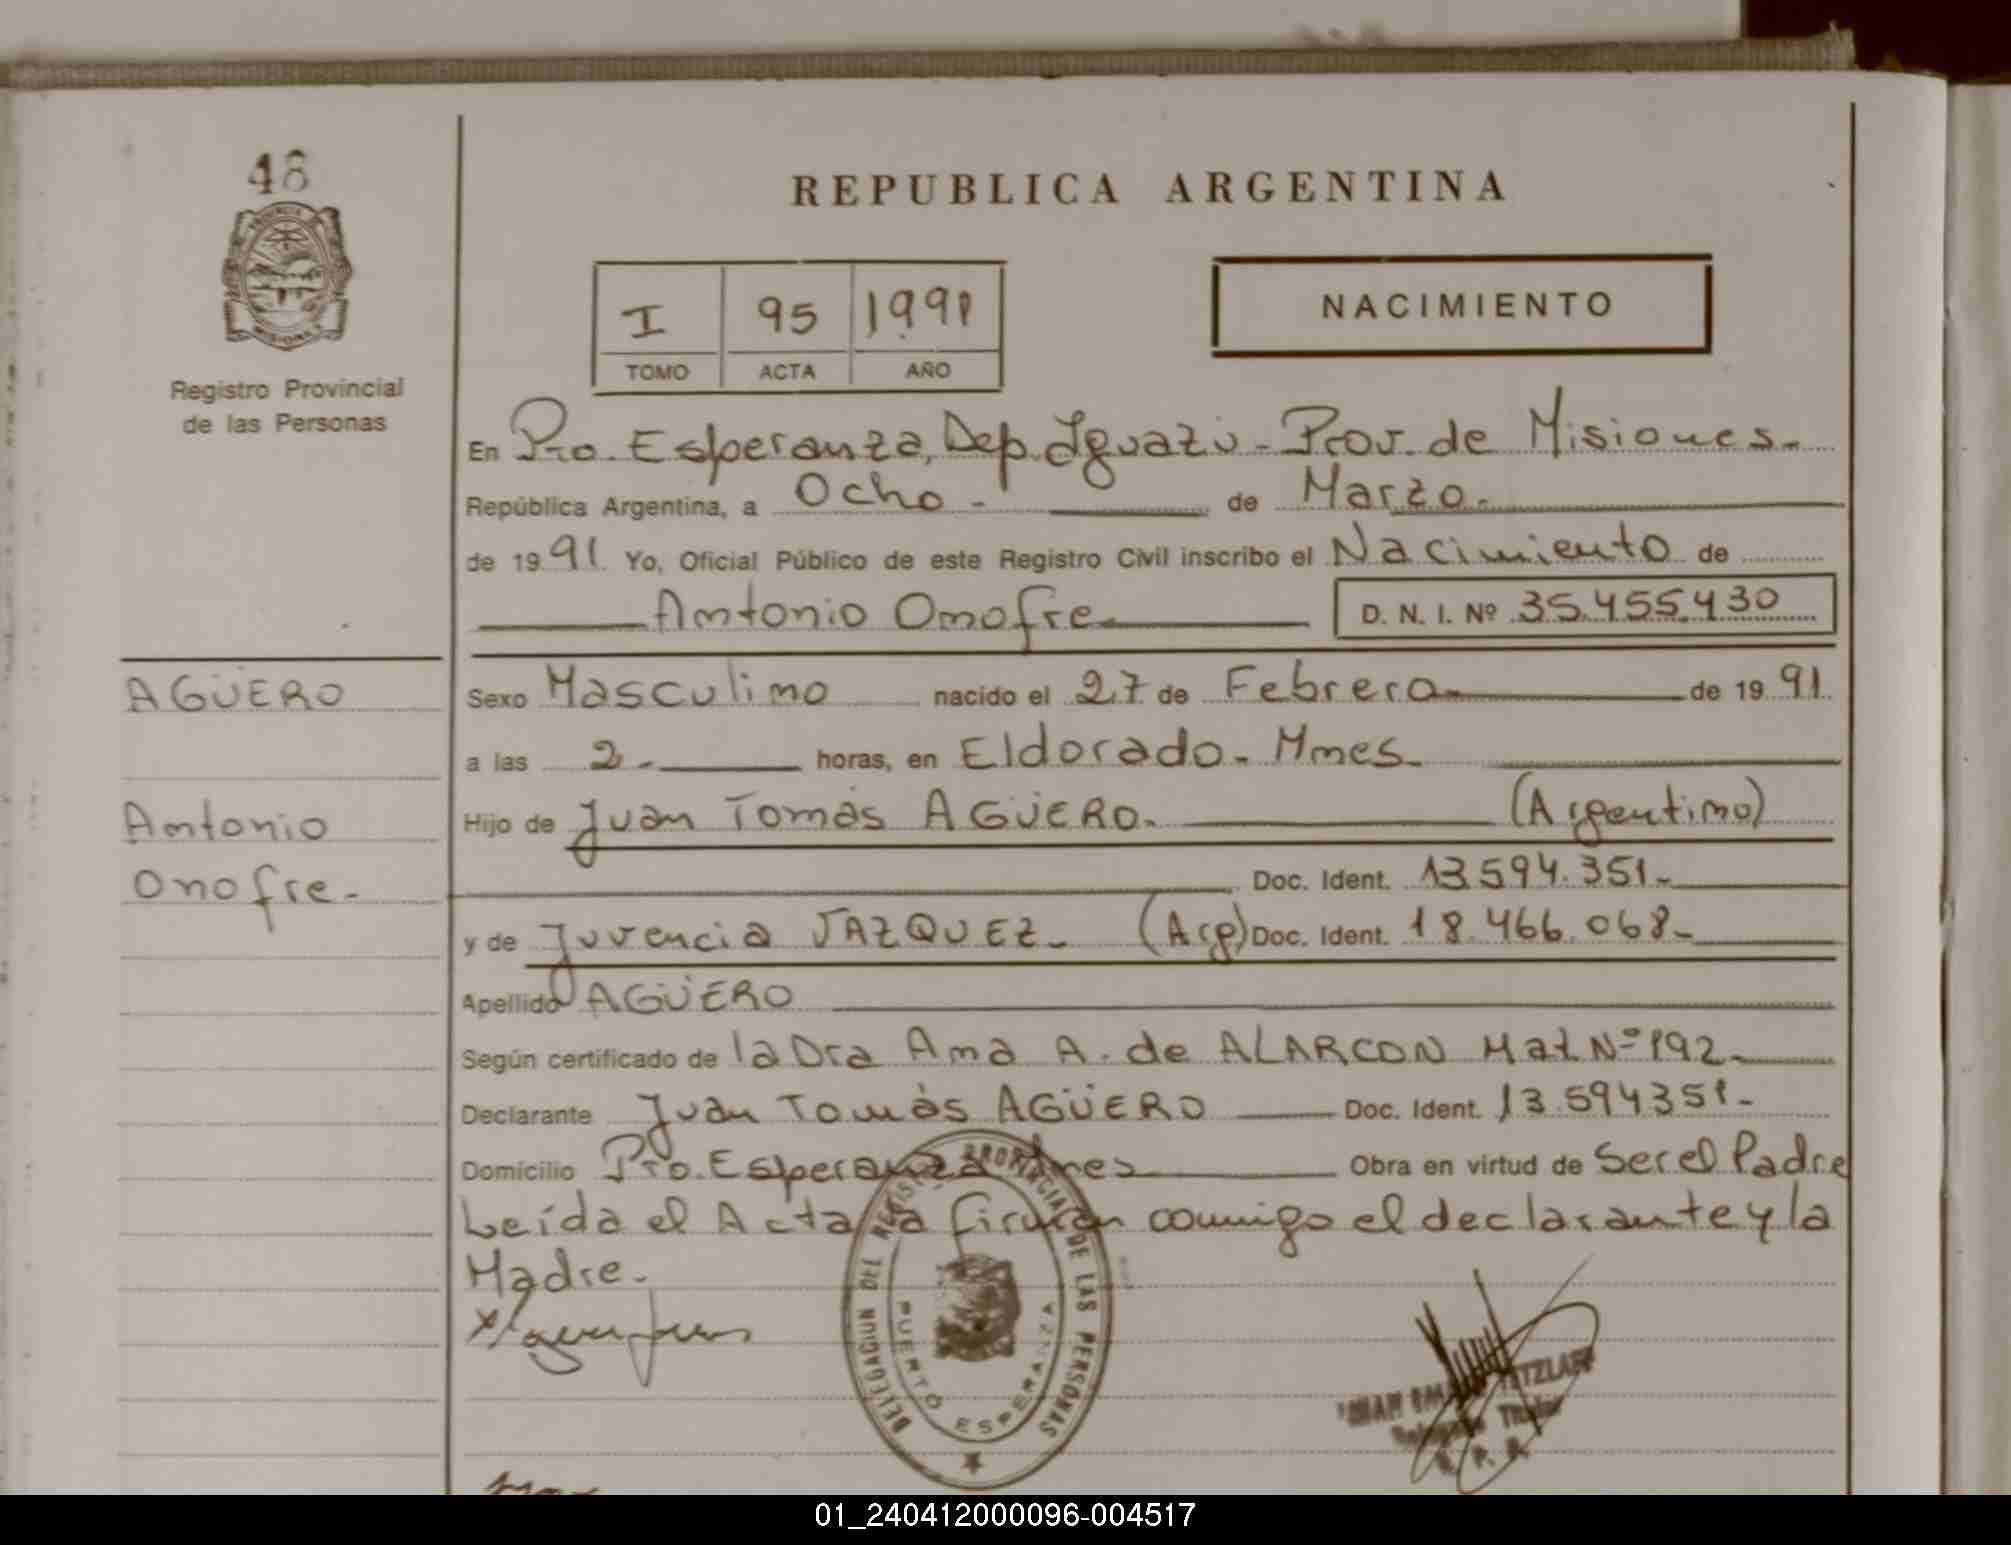 48
Registro Provincial
de las Personas
AGÜERO
Antonio
Onofre.-
REPUBLICA ARGENTINA
I 95 1991
TOMO ACTA AÑO
NACIMIENTO
En Pto. Esperanza, Dep. Iguazú - Prov. de Misiones.-
República Argentina, a Ocho.- de Marzo.-
de 1991 Yo, Oficial Público de este Registro Civil inscribo el Nacimiento de
Antonio Onofre
D. N. I. Nº 35.455.430
Sexo Masculino nacido el 27 de Febrero.- de 1991.
a las 2.- horas, en Eldorado.- Mnes.-
Hijo de Juan Tomás AGÜERO.- (Argentino)
Doc. Ident. 13.594.351.-
y de Juvencia VAZQUEZ.- (Arg) Doc. Ident. 18.466.068.-
Apellido AGÜERO
Según certificado de la Dra Ana A. de ALARCON Mat Nº 192.-
Declarante Juan Tomás AGÜERO Doc. Ident. 13.594351.-
Domicilio Pto. Esperanza Mnes Obra en virtud de Ser el Padre
Leída el Acta la firman conmigo el declarante y la
Madre.-
DELEGACION DEL REGISTRO PROVINCIAL DE LAS PERSONAS
PUERTO ESPERANZA
TETZLAFF
Titular
R. P. P.
01_240412000096-004517